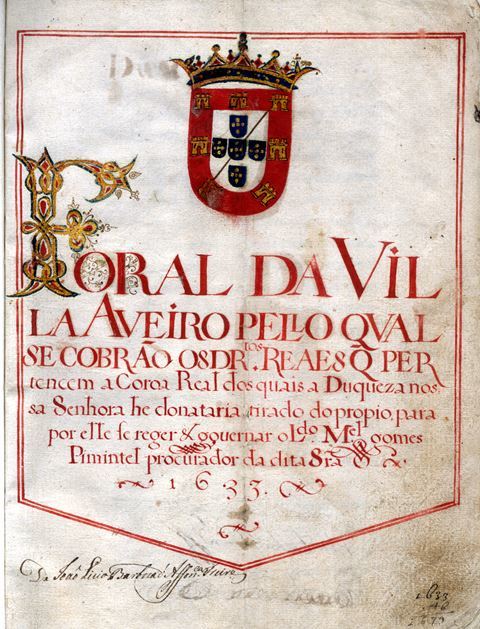 FORAL DA VIL
LA AVEIRO PELLO QVAL
SE COBRÃO OS DR.tos REAES Q PER
tencem a Coroa Real dos quais a Duqueza nos
sa Senhora he donataria, tirado do propio, para
por elle se reger & governar o L.do M.el gomes
Pimintel procurador da dita Sra
1633.
De João
1633
46
1679